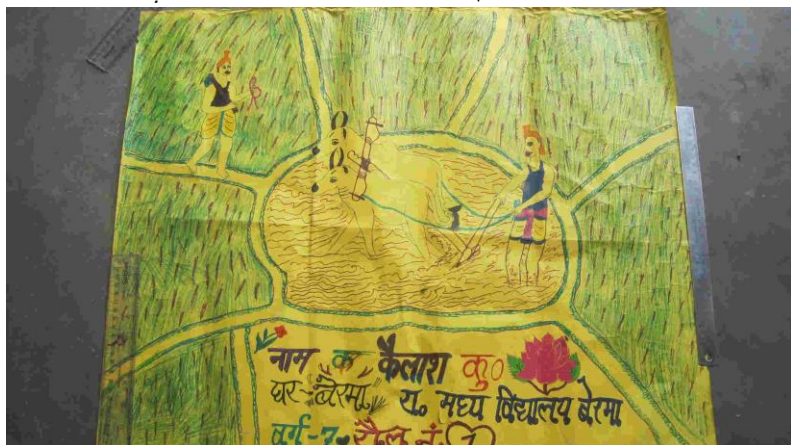 नाम क कैलाश कु०
घर-बेरमा, रा. मध्य विद्यालय बेरमा
वर्ग-7. रौल नं